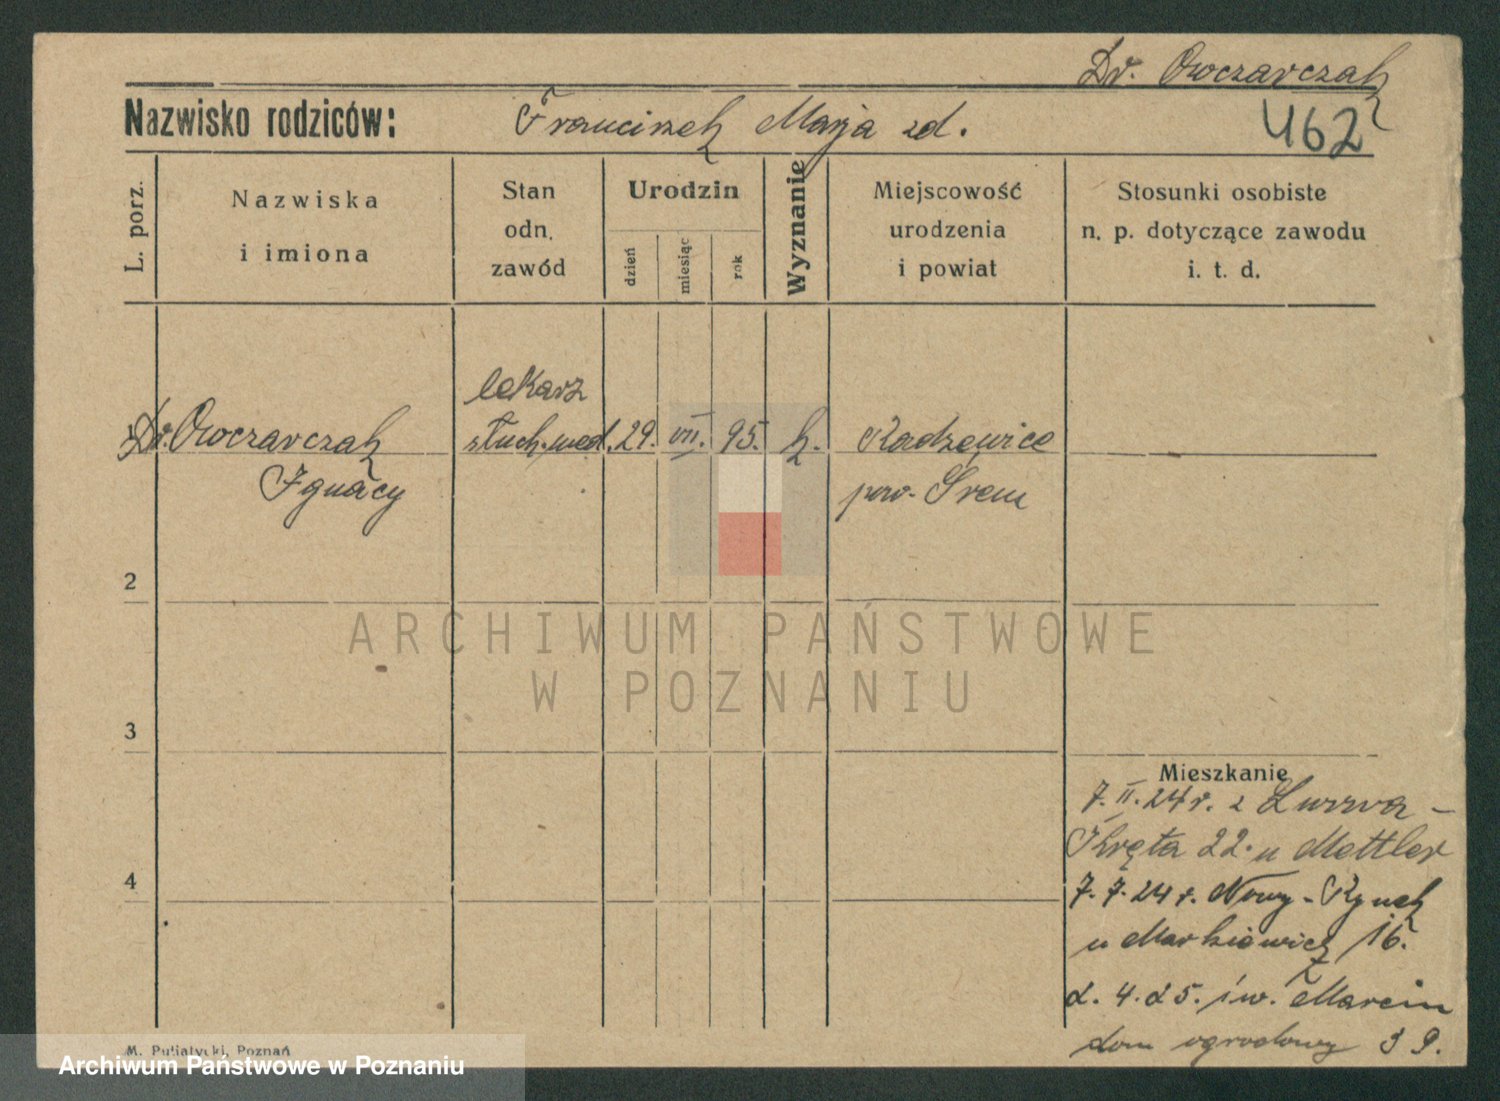 Dr. Owczarczak
Nazwisko rodziców: Franciszek Marja zd.
462
L. porz.
Nazwiska
i imiona
Stan
odn.
zawód
Urodzin
dzień
miesiąc
rok
Wyznanie
Miejscowość
urodzenia
i powiat
Stosunki osobiste
n. p. dotyczące zawodu
i. t. d.
lekarz
Dr. Owczarczak słuch. med. 29. VII. 95. k. Radzewice
Ignacy pow. Śrem
2
ARCHIWUM PAŃSTWOWE
W POZNANIU
3
Mieszkanie
7. II. 24 r. z
Kręta 22. u Mettler
4
7. 7. 24 r. Nowy-Rynek
u Markiewicz 16.
d. 4. d 5. św. Marcin
dom ogrodowy 39.
M. Putiatycki, Poznań
Archiwum Państwowe w Poznaniu